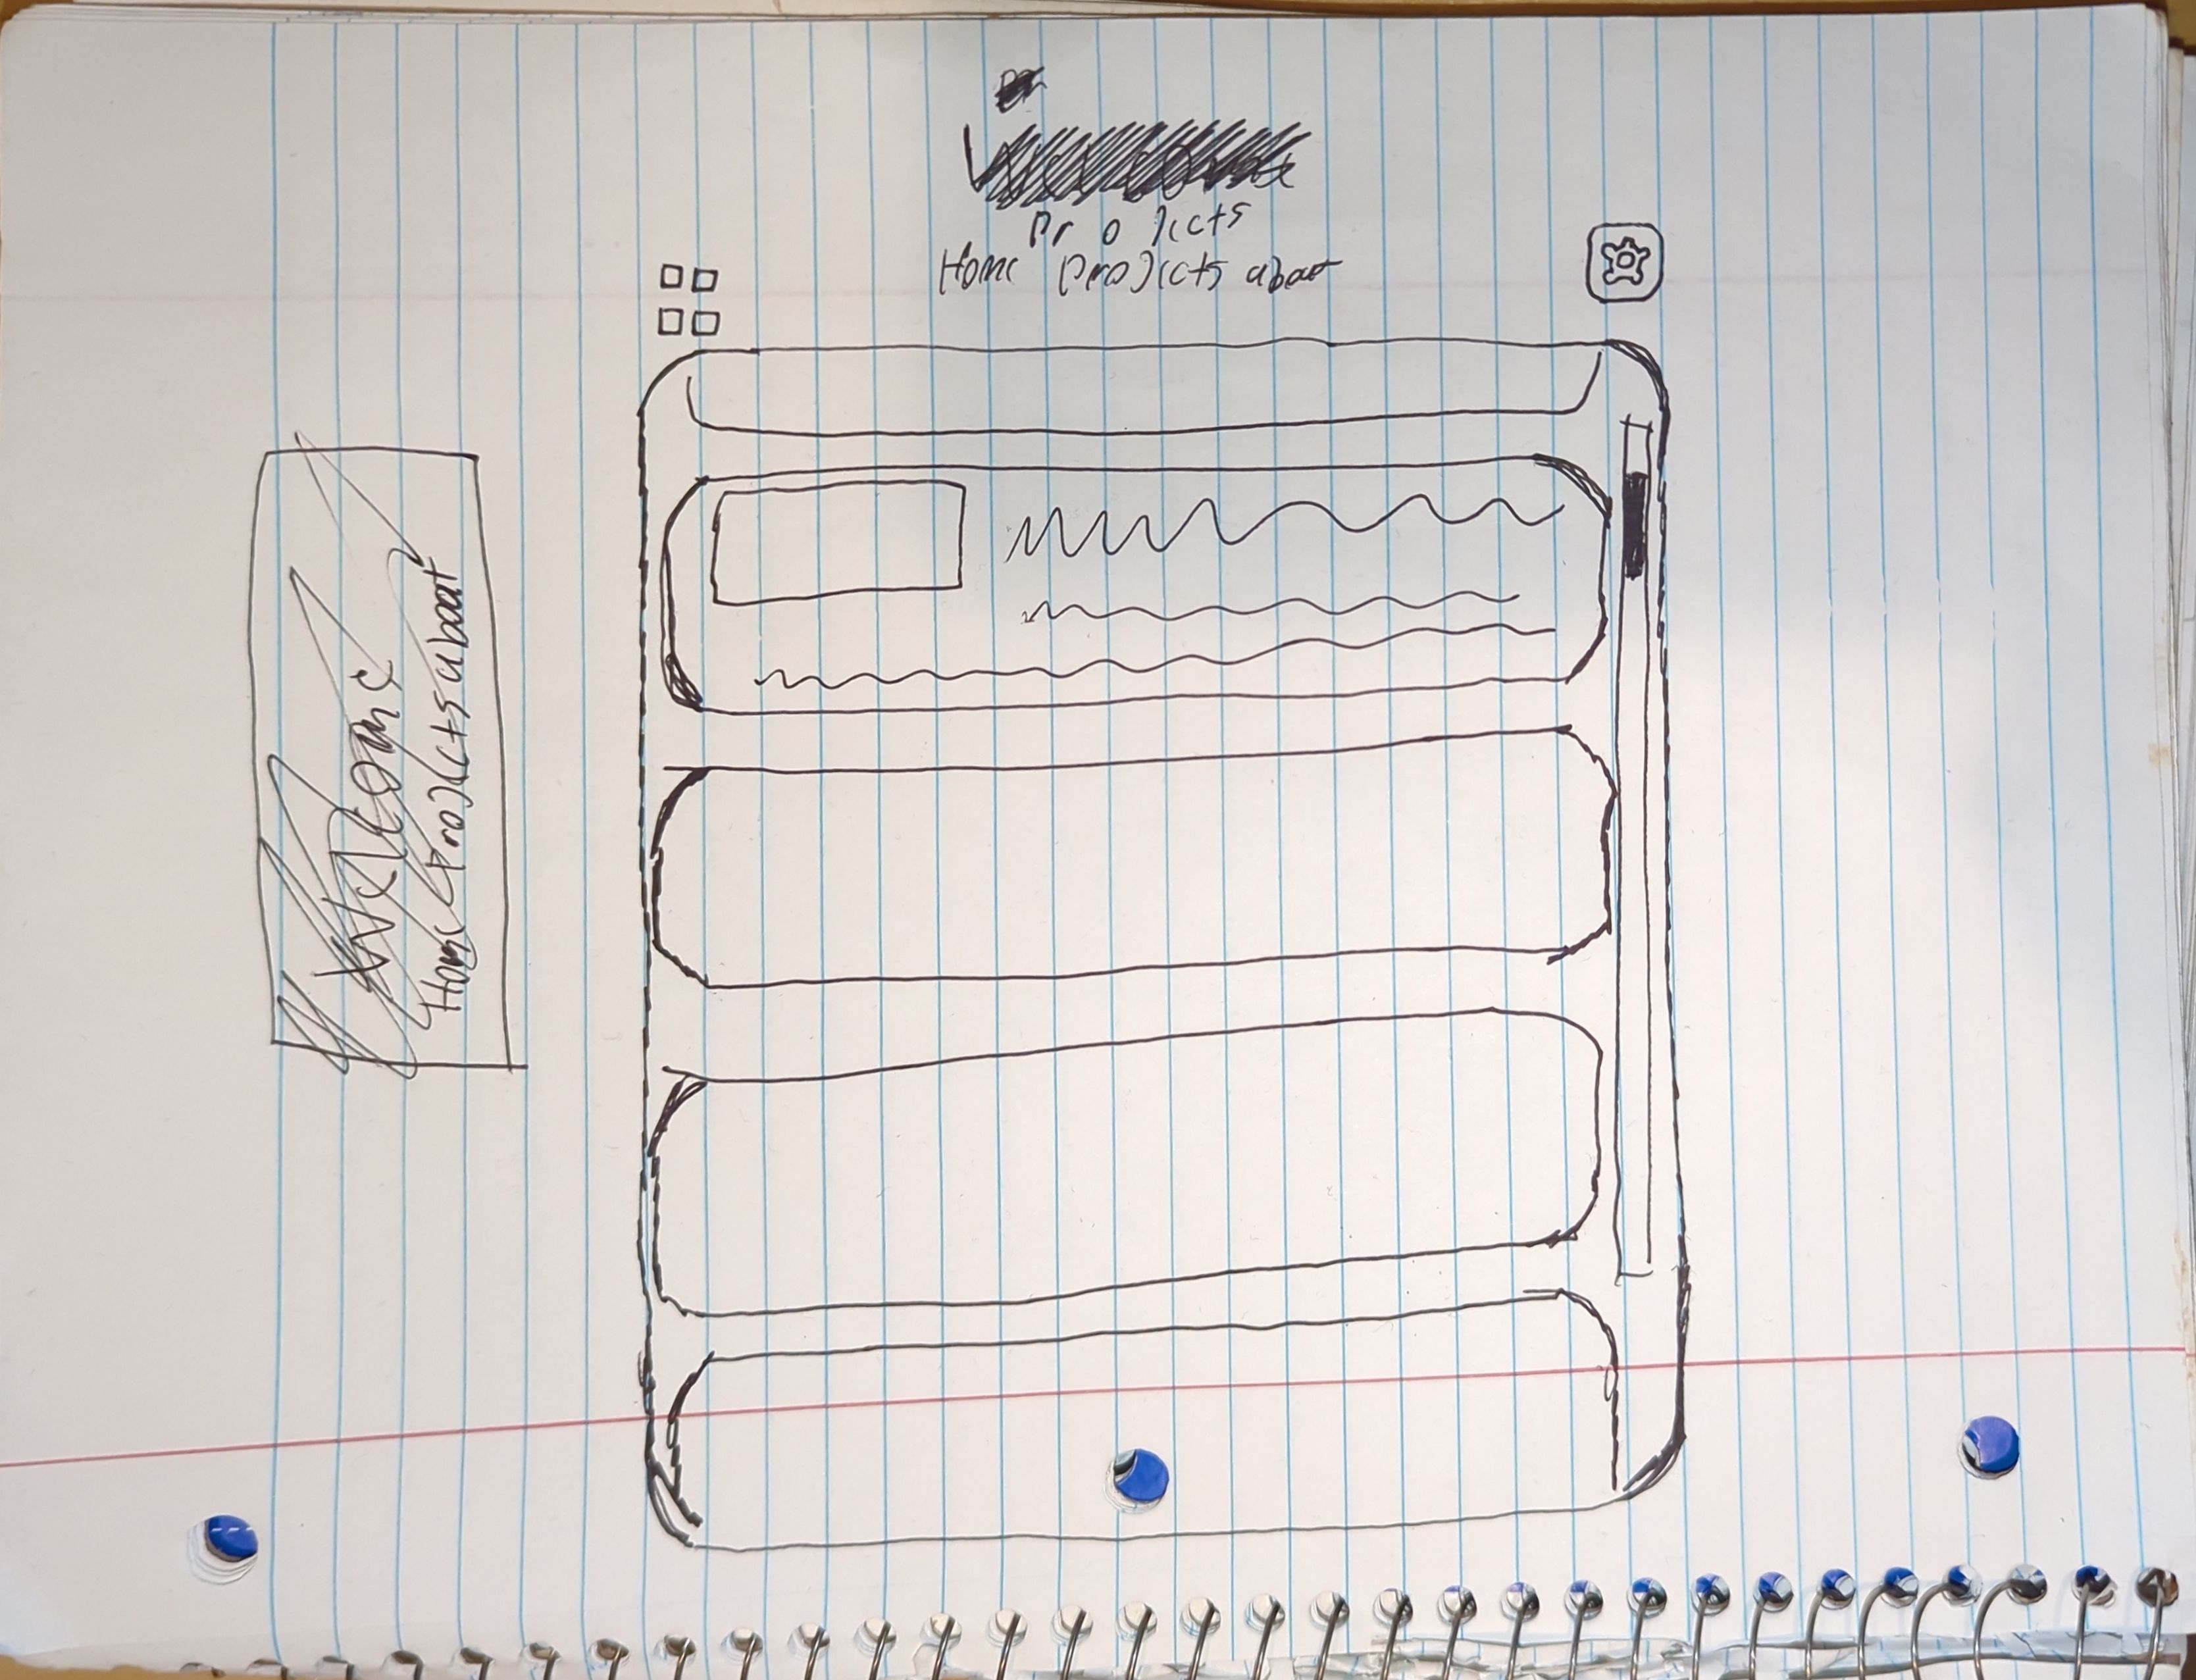 Projects
Home Projects about
Welcome
Home Projects about